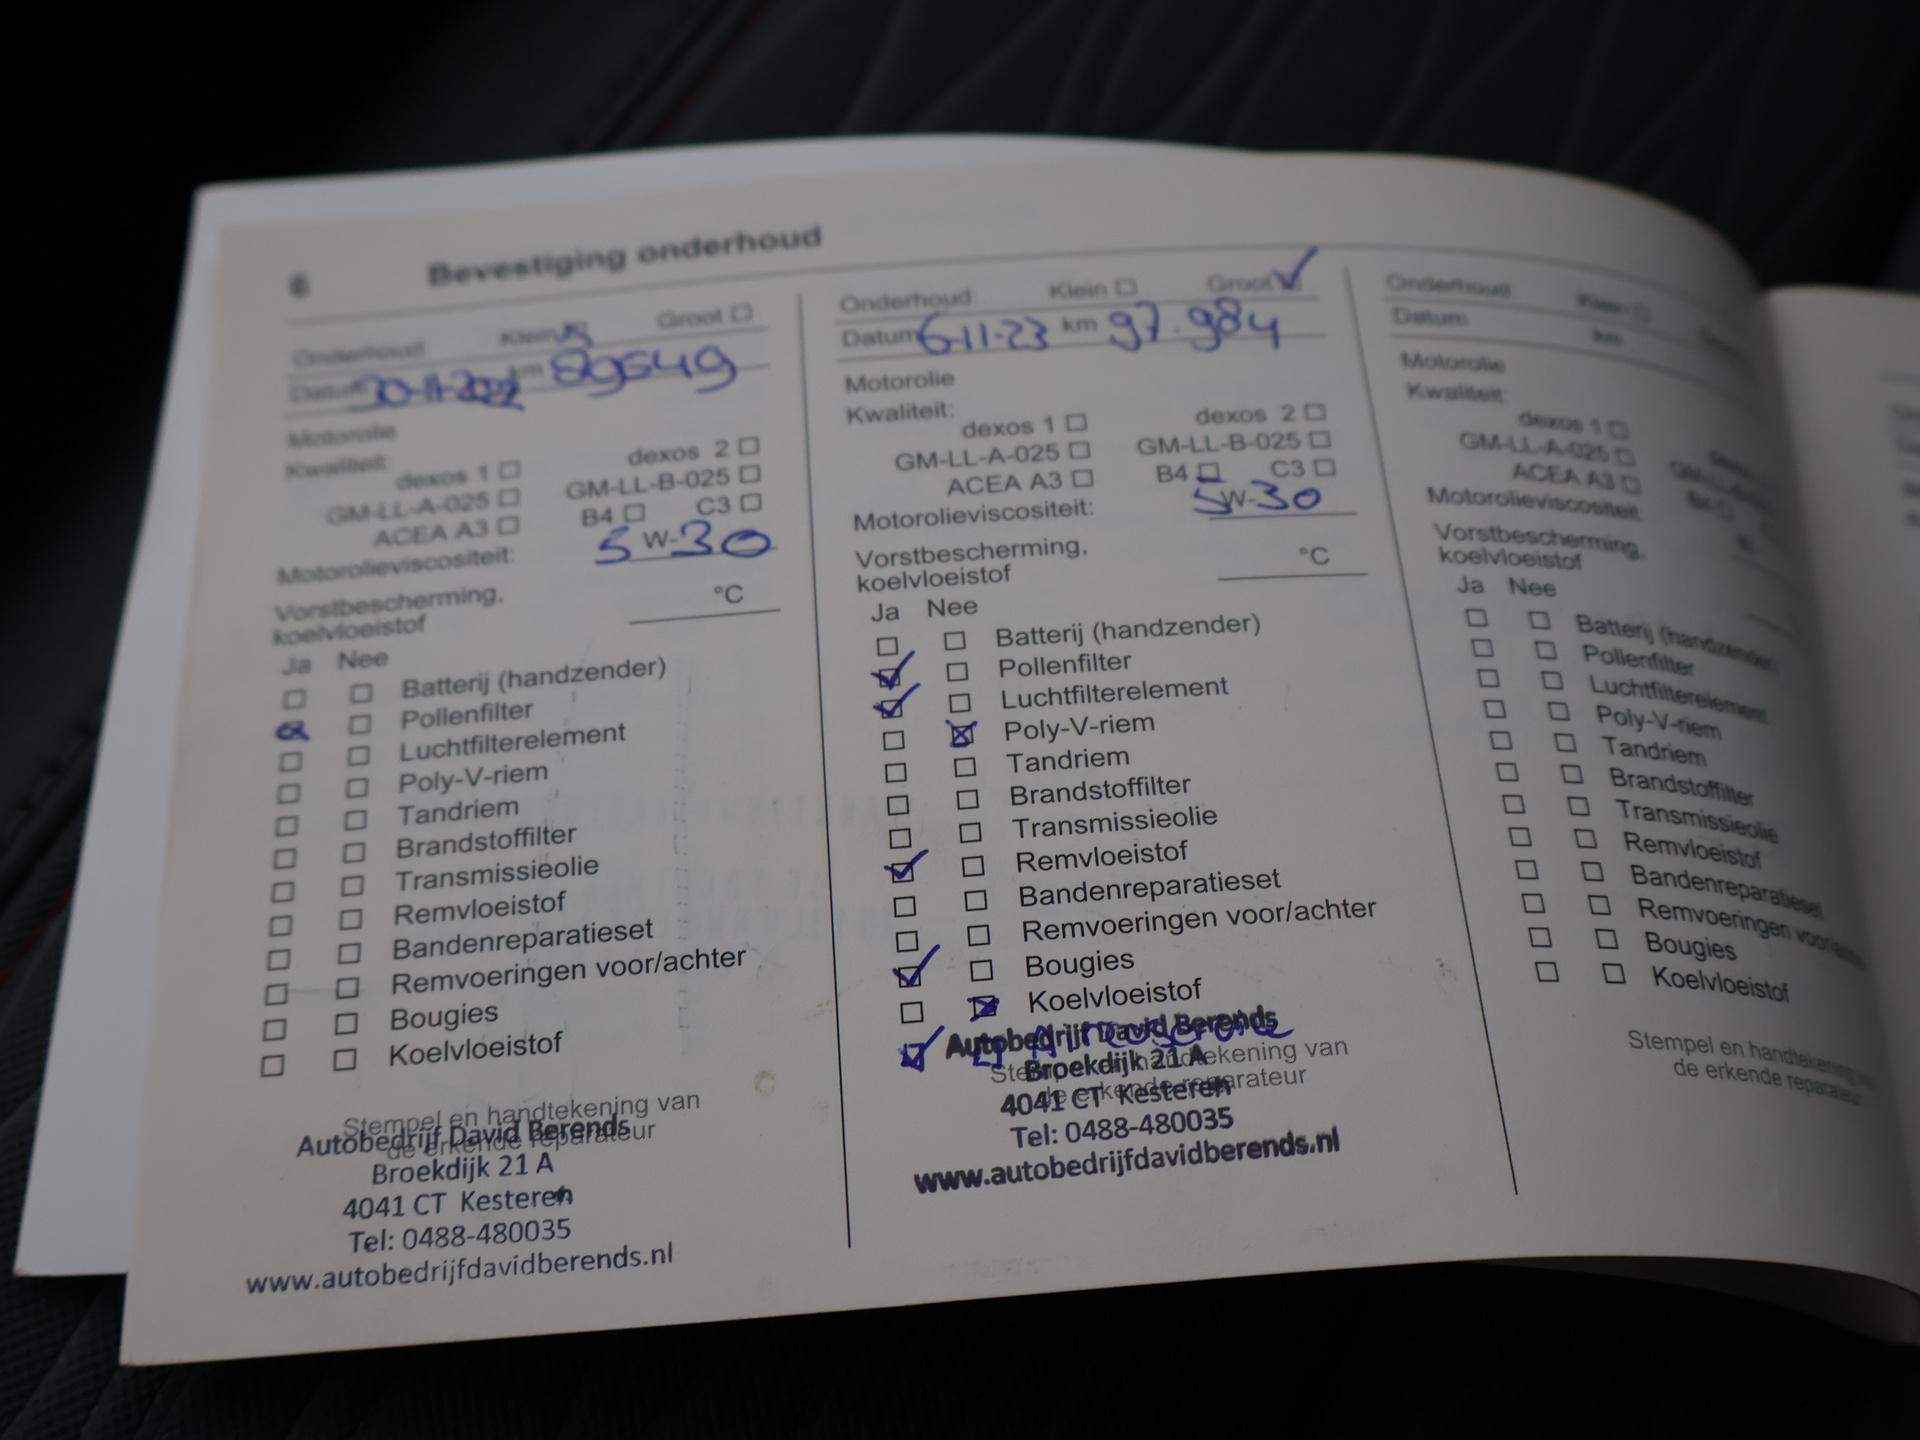 6 Bevestiging onderhoud
Onderhoud Klein Groot
Datum 30-11-2022 km 89549
Motorolie
Kwaliteit:
dexos 1 dexos 2
GM-LL-A-025 GM-LL-B-025
ACEA A3 B4 C3
Motorolieviscositeit: 5 W-30
Vorstbescherming,
koelvloeistof °C
Ja Nee
Batterij (handzender)
Pollenfilter
Luchtfilterelement
Poly-V-riem
Tandriem
Brandstoffilter
Transmissieolie
Remvloeistof
Bandenreparatieset
Remvoeringen voor/achter
Bougies
Koelvloeistof
Stempel en handtekening van
de erkende reparateur
Autobedrijf David Berends
Broekdijk 21 A
4041 CT Kesteren
Tel: 0488-480035
www.autobedrijfdavidberends.nl
Onderhoud Klein Groot
Datum 6-11-23 km 97.984
Motorolie
Kwaliteit:
dexos 1 dexos 2
GM-LL-A-025 GM-LL-B-025
ACEA A3 B4 C3
Motorolieviscositeit: 5W-30
Vorstbescherming,
koelvloeistof °C
Ja Nee
Batterij (handzender)
Pollenfilter
Luchtfilterelement
Poly-V-riem
Tandriem
Brandstoffilter
Transmissieolie
Remvloeistof
Bandenreparatieset
Remvoeringen voor/achter
Bougies
Koelvloeistof
Stempel en handtekening van
de erkende reparateur
Autobedrijf David Berends
Broekdijk 21 A
4041 CT Kesteren
Tel: 0488-480035
www.autobedrijfdavidberends.nl
Onderhoud Klein
Datum km
Motorolie
Kwaliteit:
dexos 1
GM-LL-A-025
ACEA A3 B4
Motorolieviscositeit:
Vorstbescherming,
koelvloeistof
Ja Nee
Batterij (handzender)
Pollenfilter
Luchtfilterelement
Poly-V-riem
Tandriem
Brandstoffilter
Transmissieolie
Remvloeistof
Bandenreparatieset
Remvoeringen
Bougies
Koelvloeistof
Stempel en handtekening
de erkende reparateur